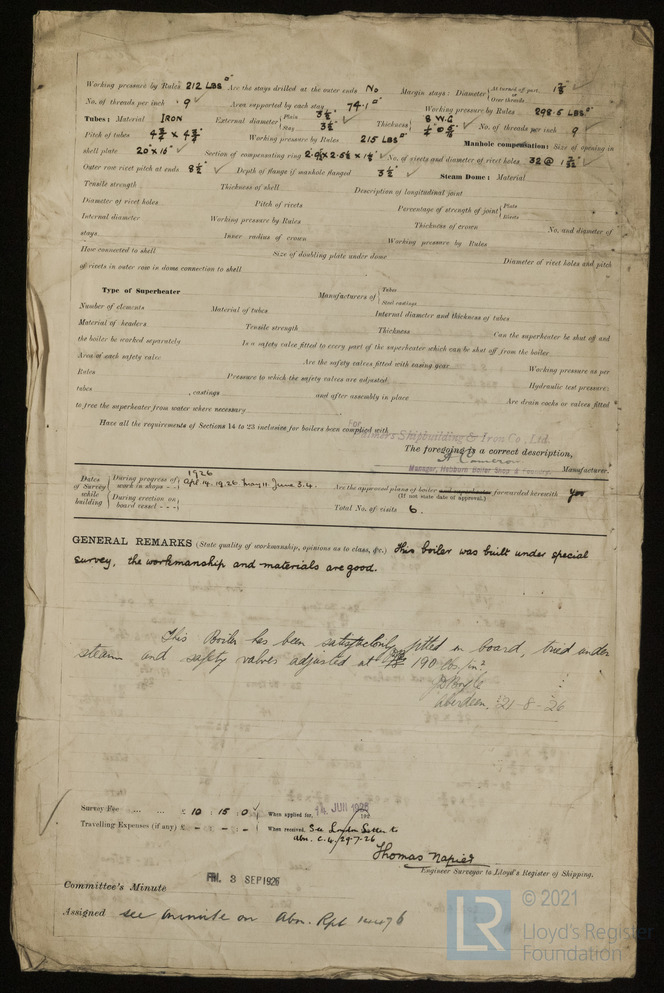 Working pressure by Rules 212 LBS □" Are the stays drilled at the outer ends No Margin stays: Diameter { At turned off part, 1 7/8" or Over threads
No. of threads per inch 9 Area supported by each stay 74.1 □" Working pressure by Rules 298.5 LBS □"
Tubes: Material IRON External diameter { Plain 3 1/2" Stay 3 1/2" Thickness { 8 W.G. No. of threads per inch 9
Pitch of tubes 4 3/4" x 4 3/4" Working pressure by Rules 215 LBS □" Manhole compensation: Size of opening in
shell plate 20" x 16" Section of compensating ring No. of rivets and diameter of rivet holes 32 @
Outer row rivet pitch at ends 8 1/2" Depth of flange if manhole flanged 3 1/2" Steam Dome: Material
Tensile strength Thickness of shell Description of longitudinal joint
Diameter of rivet holes Pitch of rivets Percentage of strength of joint { Plate Rivets
Internal diameter Working pressure by Rules Thickness of crown No. and diameter of
stays Inner radius of crown Working pressure by Rules
How connected to shell Size of doubling plate under dome Diameter of rivet holes and pitch
of rivets in outer row in dome connection to shell
Type of Superheater Manufacturers of { Tubes Steel castings
Number of elements Material of tubes Internal diameter and thickness of tubes
Material of headers Tensile strength Thickness Can the superheater be shut off and
the boiler be worked separately Is a safety valve fitted to every part of the superheater which can be shut off from the boiler
Area of each safety valve Are the safety valves fitted with easing gear Working pressure as per
Rules Pressure to which the safety valves are adjusted Hydraulic test pressure:
tubes , castings and after assembly in place Are drain cocks or valves fitted
to free the superheater from water where necessary
Have all the requirements of Sections 14 to 23 inclusive for boilers been complied with
FOR Palmers Shipbuilding & Iron Co., Ltd.
The foregoing is a correct description,
A Cameron
Manager, Hebburn Boiler Shop & Foundry. Manufacturer.
Dates of Survey while building { During progress of work in shops - - } 1926 Apr 14. 19. 26. May 11. June 3. 4. Are the approved plans of boiler and superheater forwarded herewith yes
(If not state date of approval.)
{ During erection on board vessel - - - } Total No. of visits 6.
GENERAL REMARKS (State quality of workmanship, opinions as to class, &c.) This boiler was built under special
survey, the workmanship and materials are good.
This Boiler has been satisfactorily fitted on board, tried under
steam and safety valves adjusted at 190 lbs/in².
Aberdeen, 21-8-26
Survey Fee ... ... £ 10 : 15 : 0 When applied for, 14 JUN 1926 192
Travelling Expenses (if any) £ - : - : - When received, See London Letter to
Abn. C.4/29-7-26
Thomas Napier
Engineer Surveyor to Lloyd's Register of Shipping.
Committee's Minute FRI. 3 SEP 1926
Assigned see minute on Abn. Rpt
© 2021
LR Lloyd's Register
Foundation